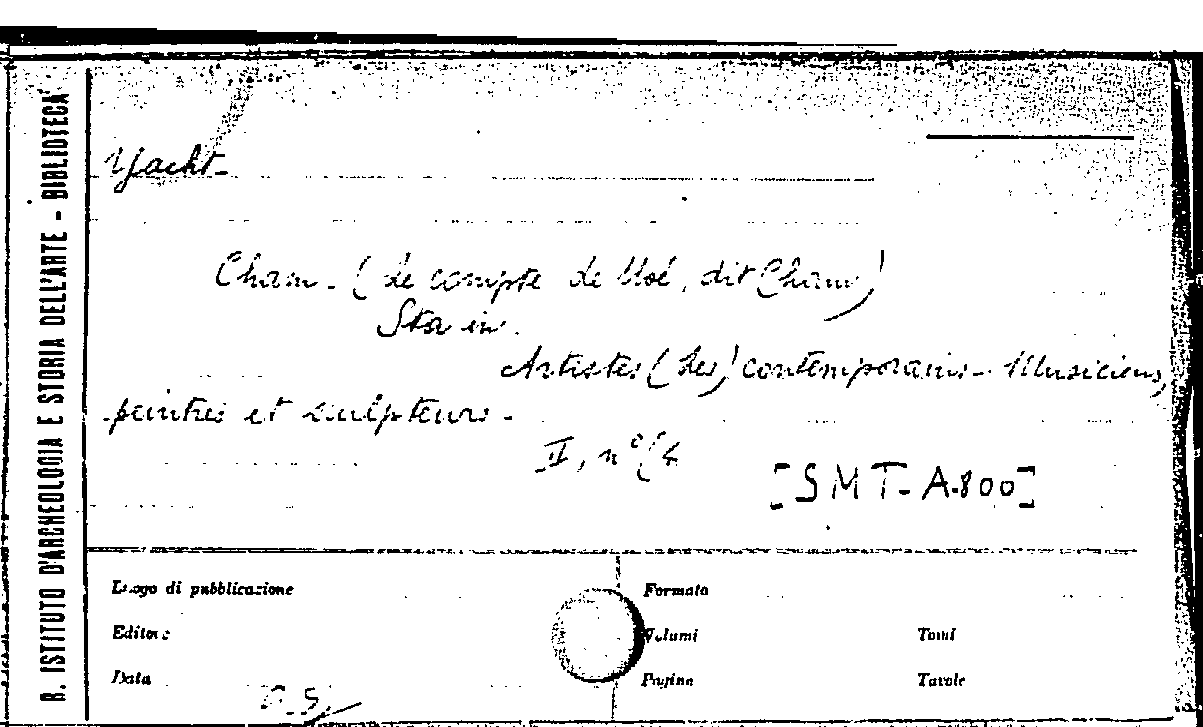 R. ISTITUTO D'ARCHEOLOGIA E STORIA DELL'ARTE - BIBLIOTECA
Yacht-
Cham. (Le compte de Noé, dit Cham)
in.
Artistes (Les) contemporains - Musiciens,
peintres et sculpteurs -
II, n°
[SMT-A.800]
Luogo di pubblicazione
Formato
Editore
Volumi
Tomi
Data
Pagine
Tavole